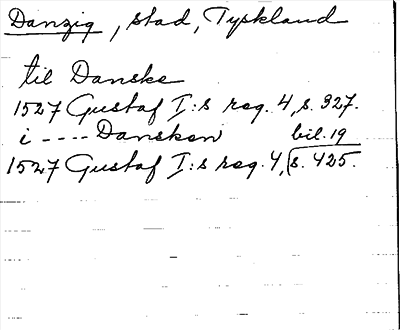 Danzig, stad, Tyskland
til Danske
1527 Gustaf I:s reg. 4, s. 327.
i ---- Dansken bil. 19
1527 Gustaf I:s reg. 4, s. 425.